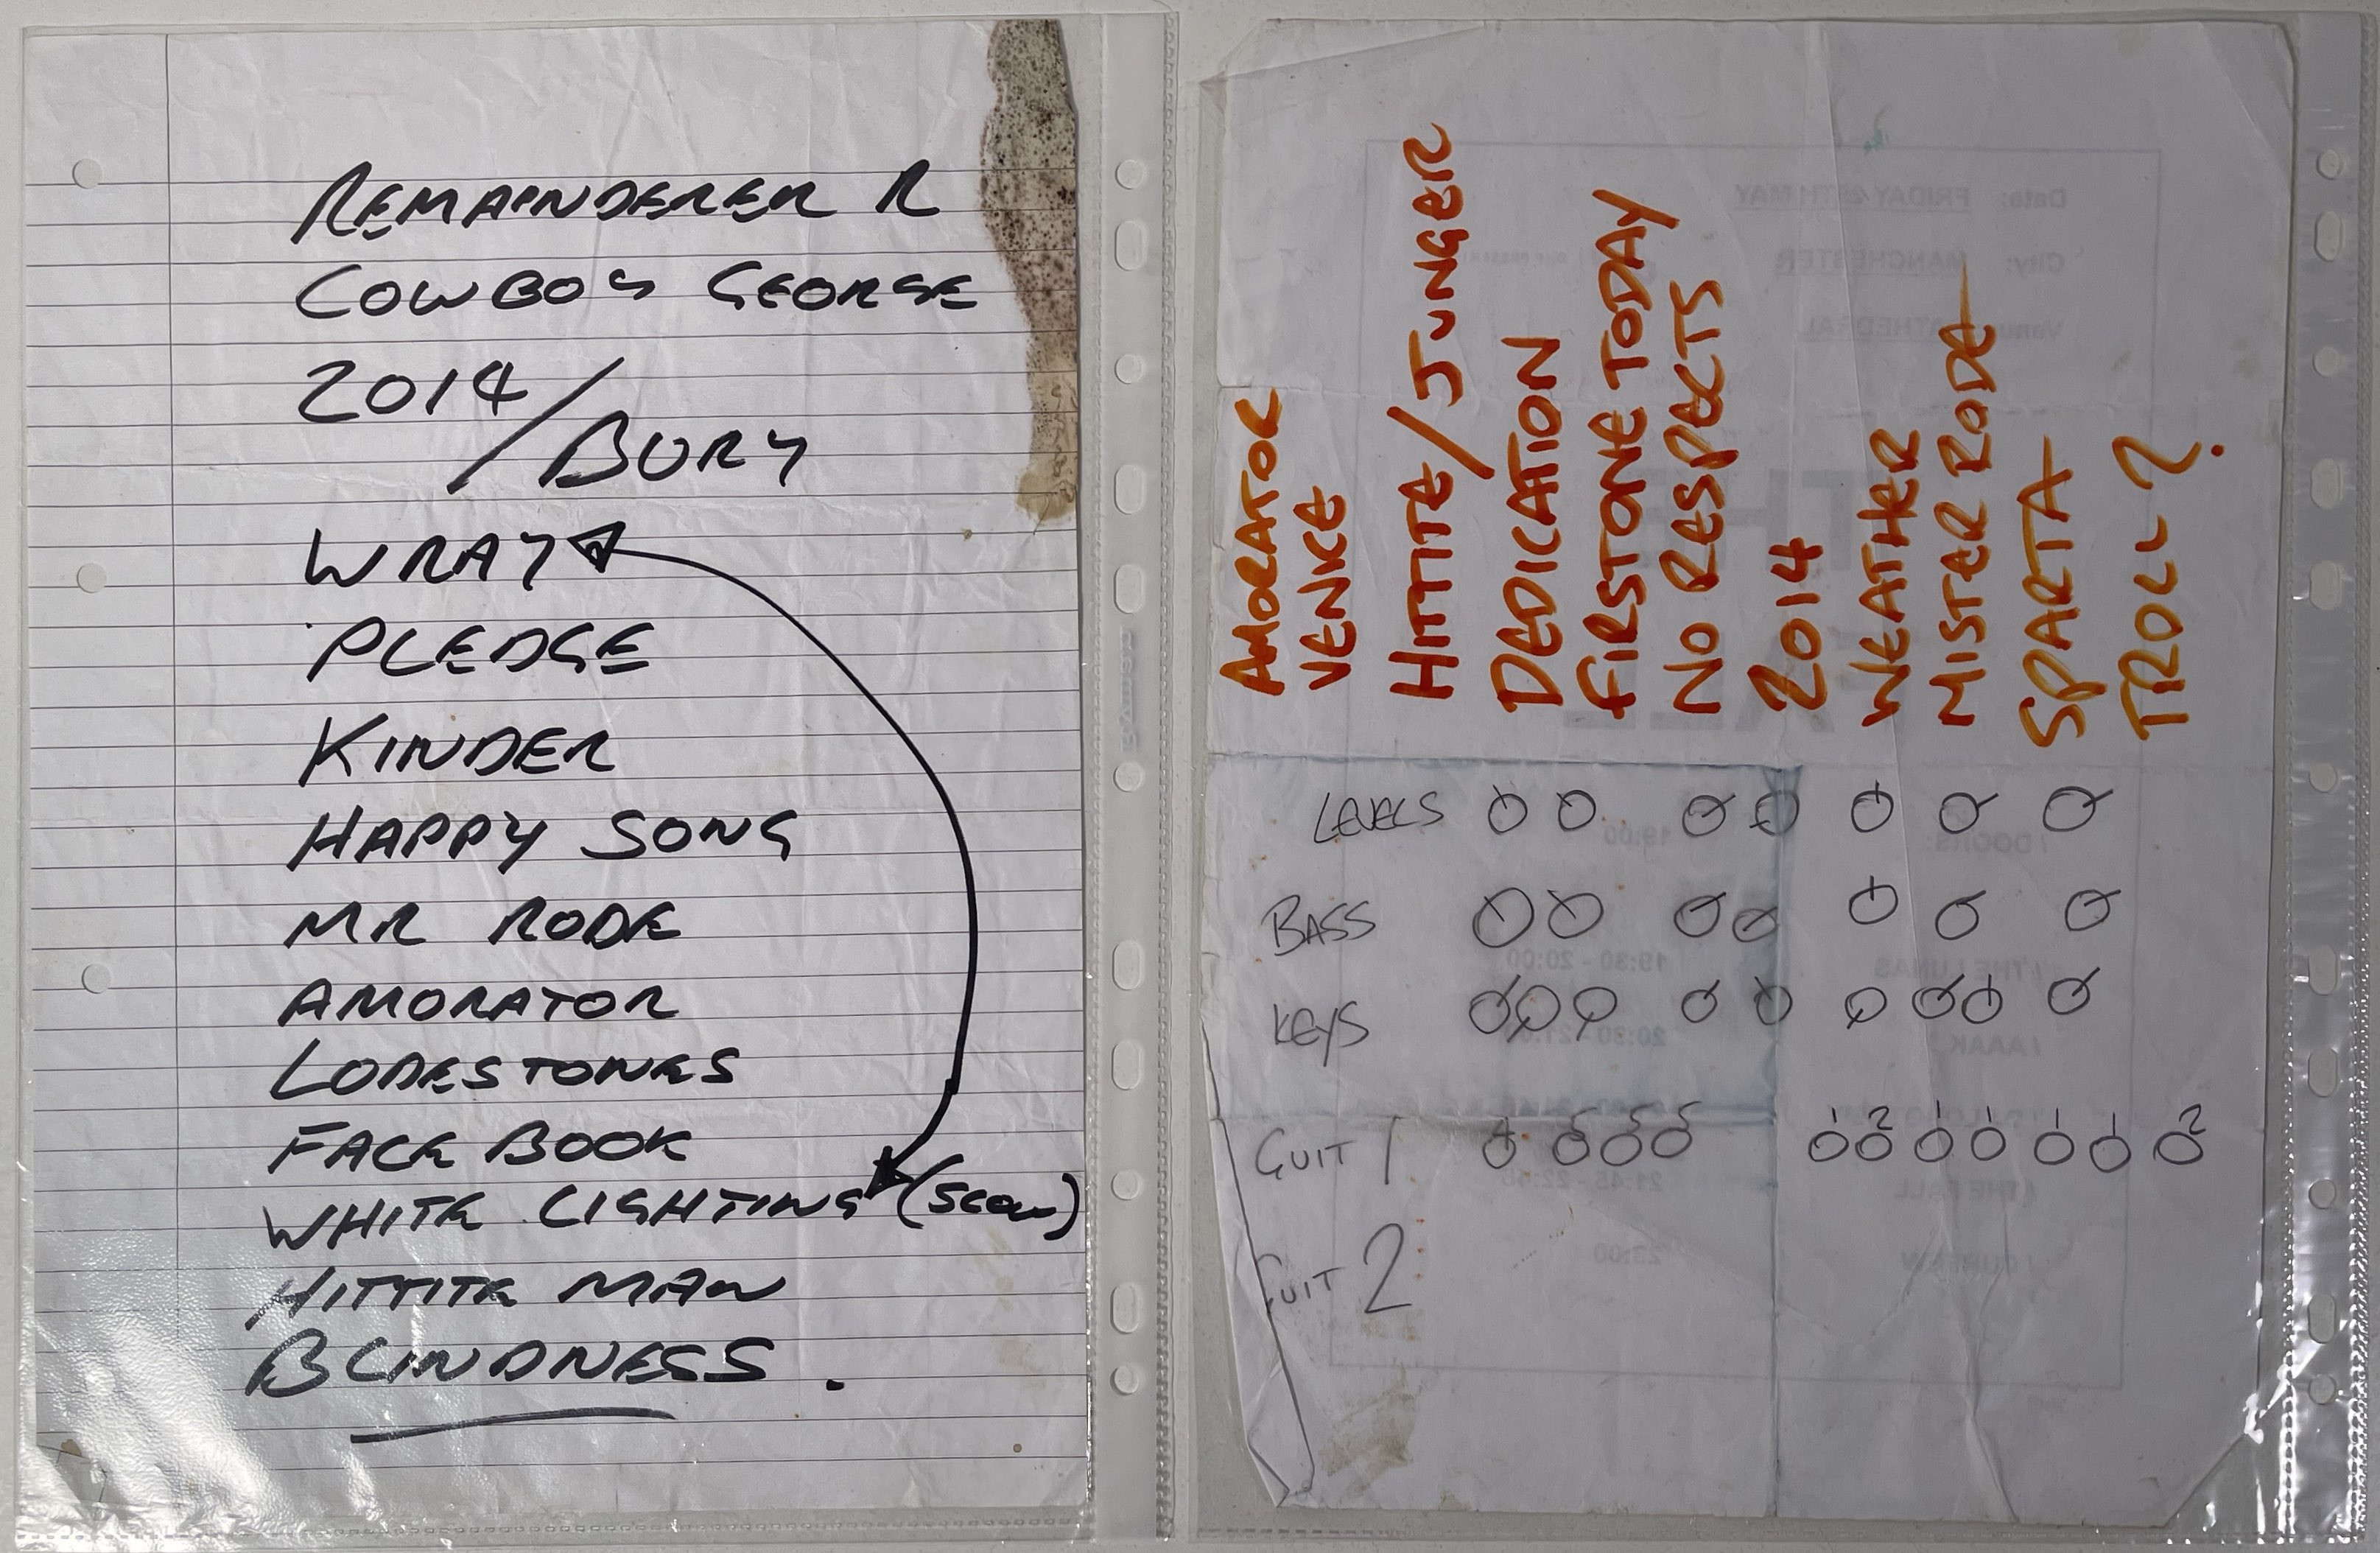 REMAINDERER R
COWBOY GEORGE
2014
/BURY
WRAY
PLEDGE
KINDER
HAPPY SONG
MR RODE
AMORATOR
LODESTONES
FACE BOOK
WHITE LIGHTING (SLOW)
HITTITE MAN
BLINDNESS.
AMORATOR
VENICE
HITTITE/JUNGER
DEDICATION
FIRSTONE TODAY
NO RESPECTS
2014
WEATHER
MISTER RODE
SPARTA
TROLL?
LEVELS
BASS
KEYS
GUIT 1
1 2 1 1 1 1 2
GUIT 2
Date: FRIDAY 29TH MAY
City: MANCHESTER
Venue: CATHEDRAL
THE
FALL
/ DOORS: 19:00
/ THE LUNAS 19:30 - 20:00
/ AAAK 20:30 - 21:00
/ THE FALL 21:45
/ CURFEW 23:00